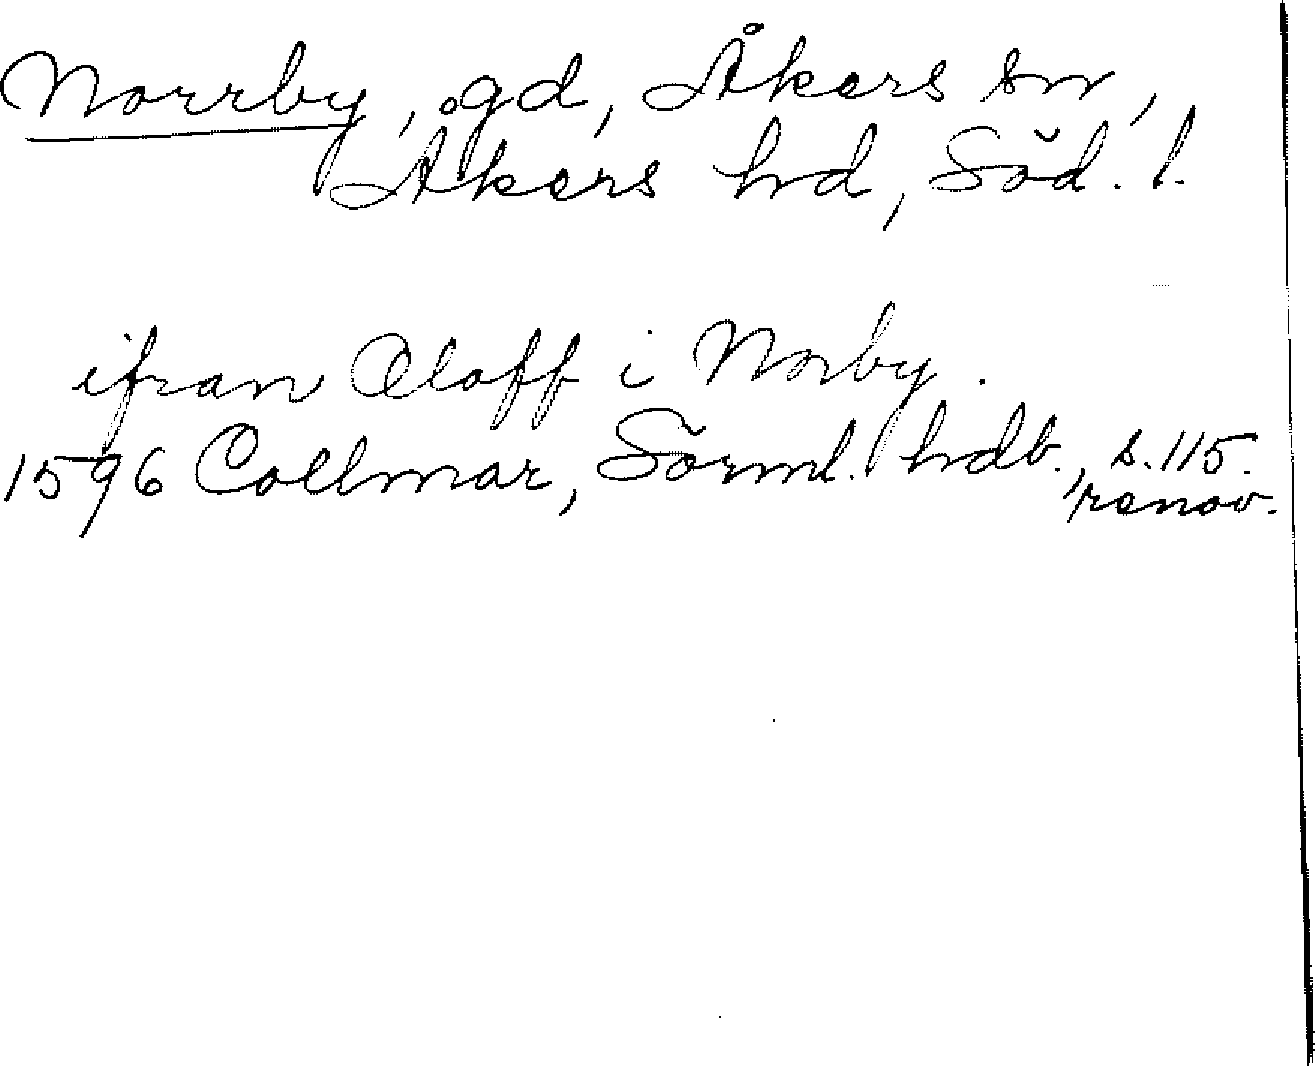 Norrby, gd, Åkers sn,
Åkers hd, Söd. l.
ifran Oloff i Norby.
1596 Collmar, Sörml. hdb., s. 115.
renov.